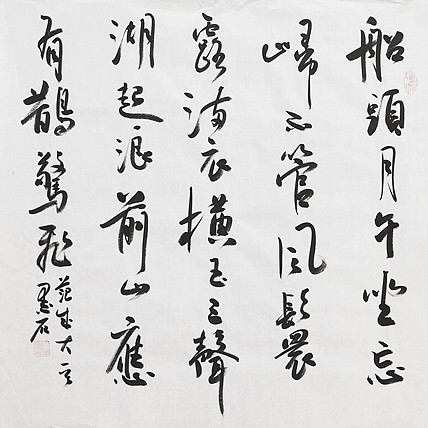 船頭月午坐忘
歸不管风鬟
露滿衣橫玉三聲
湖起浪前山應
有鵲驚飛
范成大
墨石